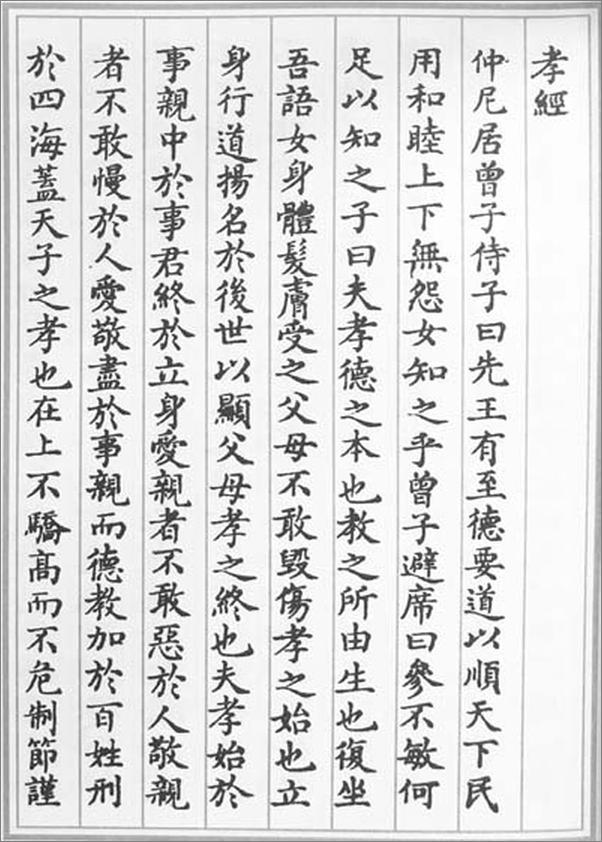 孝經
仲尼居曾子侍子曰先王有至德要道以順天下民
用和睦上下無怨女知之乎曾子避席曰參不敏何
足以知之子曰夫孝德之本也教之所由生也復坐
吾語女身體髮膚受之父母不敢毀傷孝之始也立
身行道揚名於後世以顯父母孝之終也夫孝始於
事親中於事君終於立身愛親者不敢惡於人敬親
者不敢慢於人愛敬盡於事親而德教加於百姓刑
於四海蓋天子之孝也在上不驕高而不危制節謹